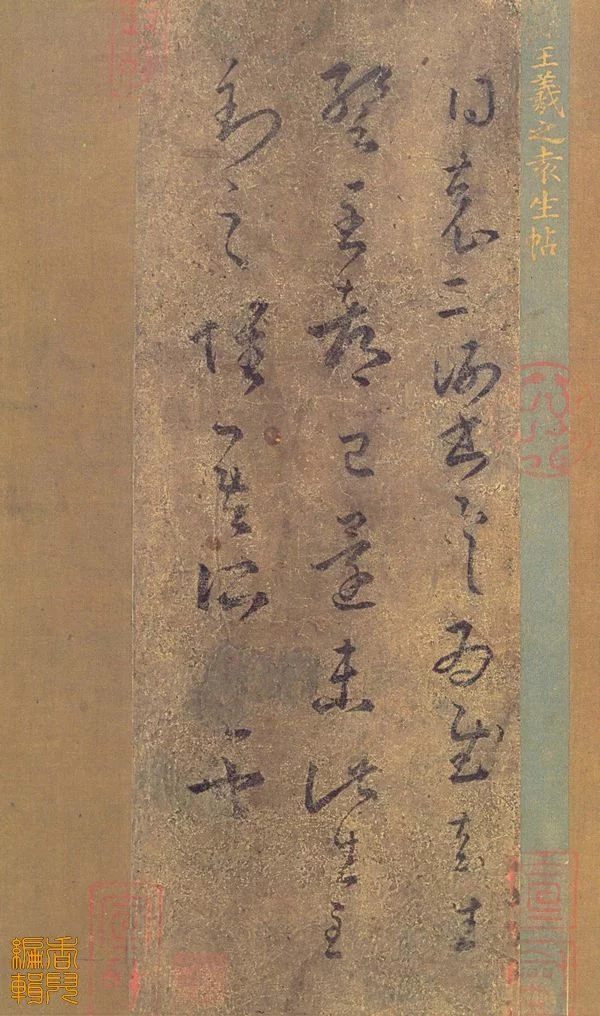 王羲之袁生帖
得袁二謝書具為慰袁生
暫至都已還未此生至
到之懷吾所盡也